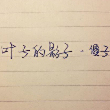 叶子的影子·傻子